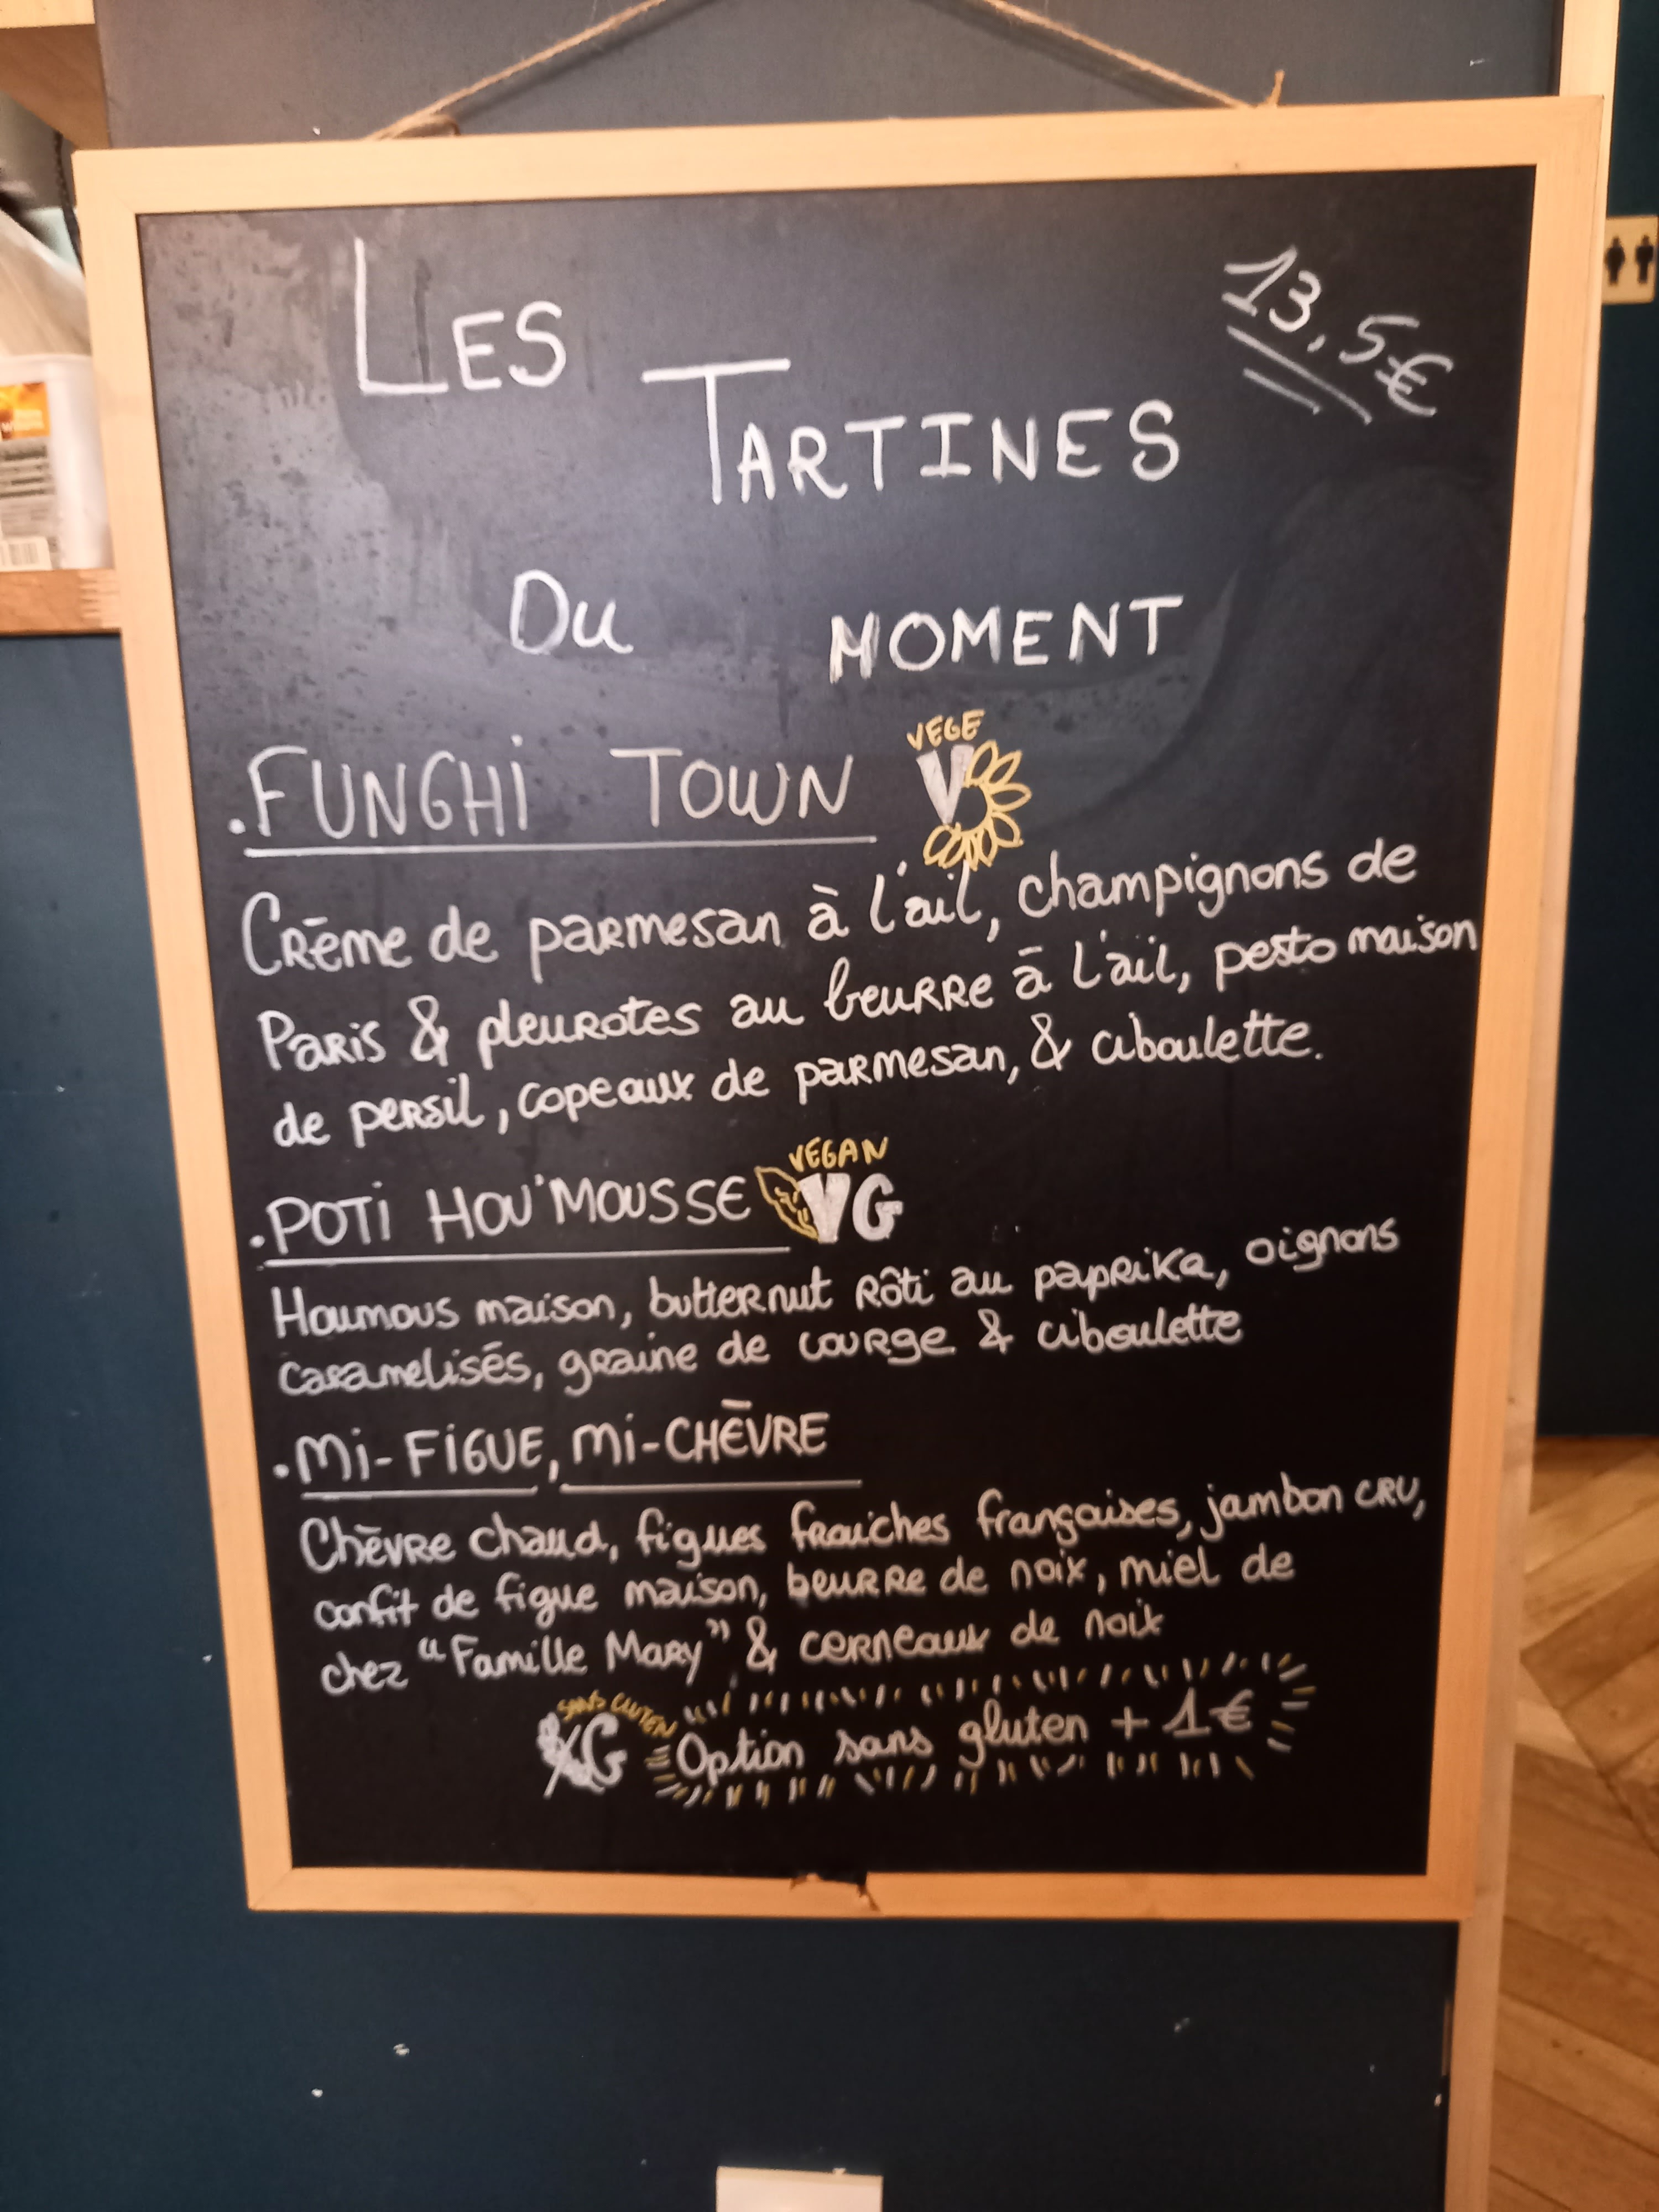 LES
13,5€
TARTINES
DU MOMENT
VEGE
.FUNGHI TOWN V
Crème de parmesan à l'ail, champignons de
Paris & pleurotes au beurre à l'ail, pesto maison
de persil, copeaux de parmesan, & ciboulette.
VEGAN
.POTI HOU'MOUSSE VG
Houmous maison, butternut rôti au paprika, oignons
caramelisés, graine de courge & ciboulette
.Mi-FiGUE, Mi-CHÈVRE
Chèvre chaud, figues fraiches françaises, jambon CRU,
confit de figue maison, beurre de noix, miel de
chez "Famille Mary" & cerneaux de noix
SANS GLUTEN
G Option sans gluten + 1€